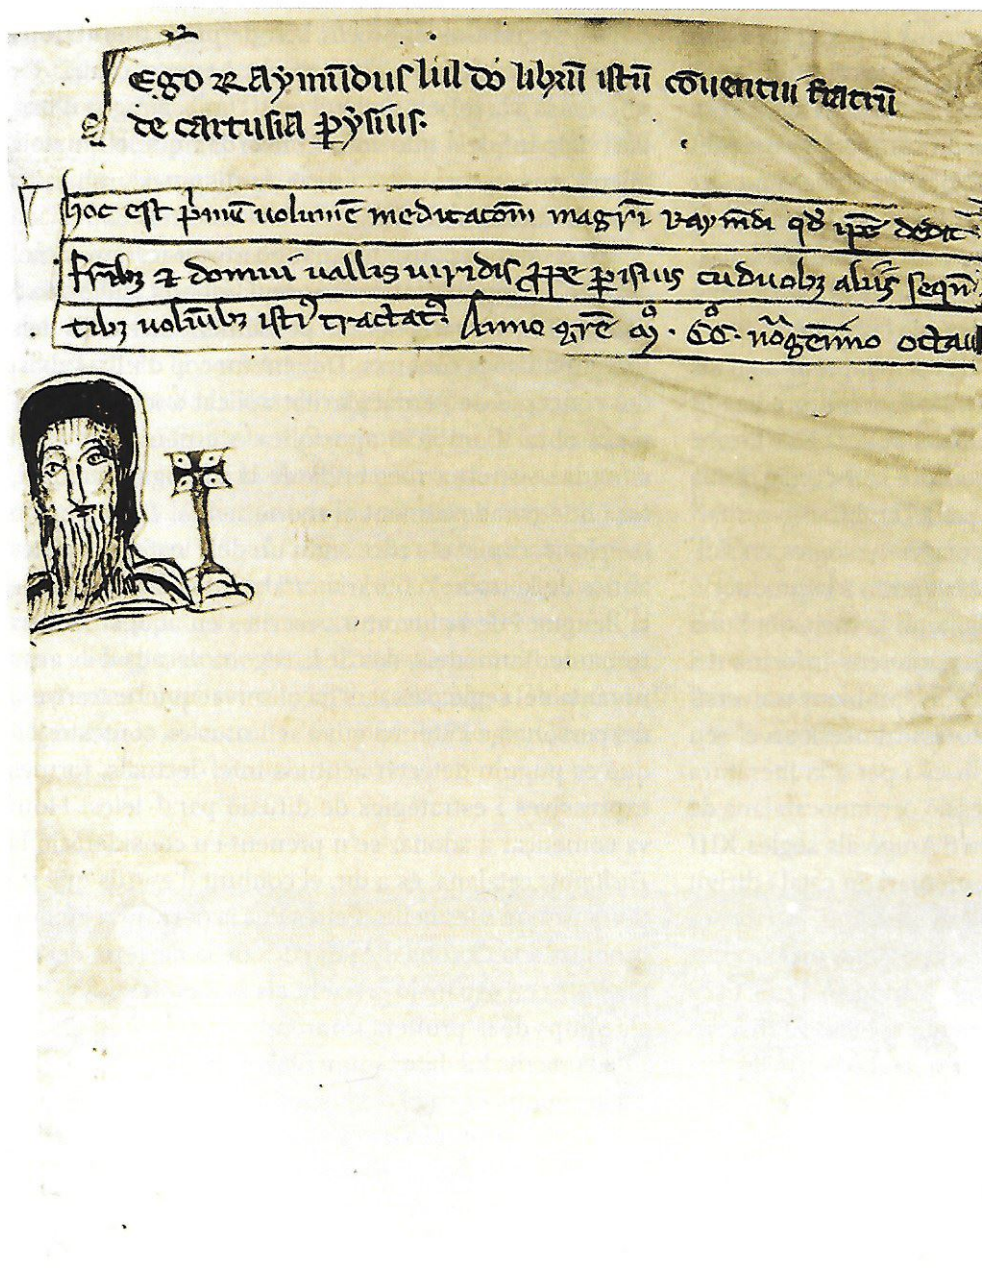 Ego Raymūdus lul do librū istū cōuentui fratrū
de cartusia pysius.
hoc est pmū uolumē meditacōm magrī Raymdi qd ipē dedit
frībꝫ ⁊ domui uallis uiridis ꝓpe pisius cū duobꝫ aliis sequn
tibꝫ uolūībꝫ isti tractat9. Anno grē mͦ. ccͦ. nōgēīmo octau